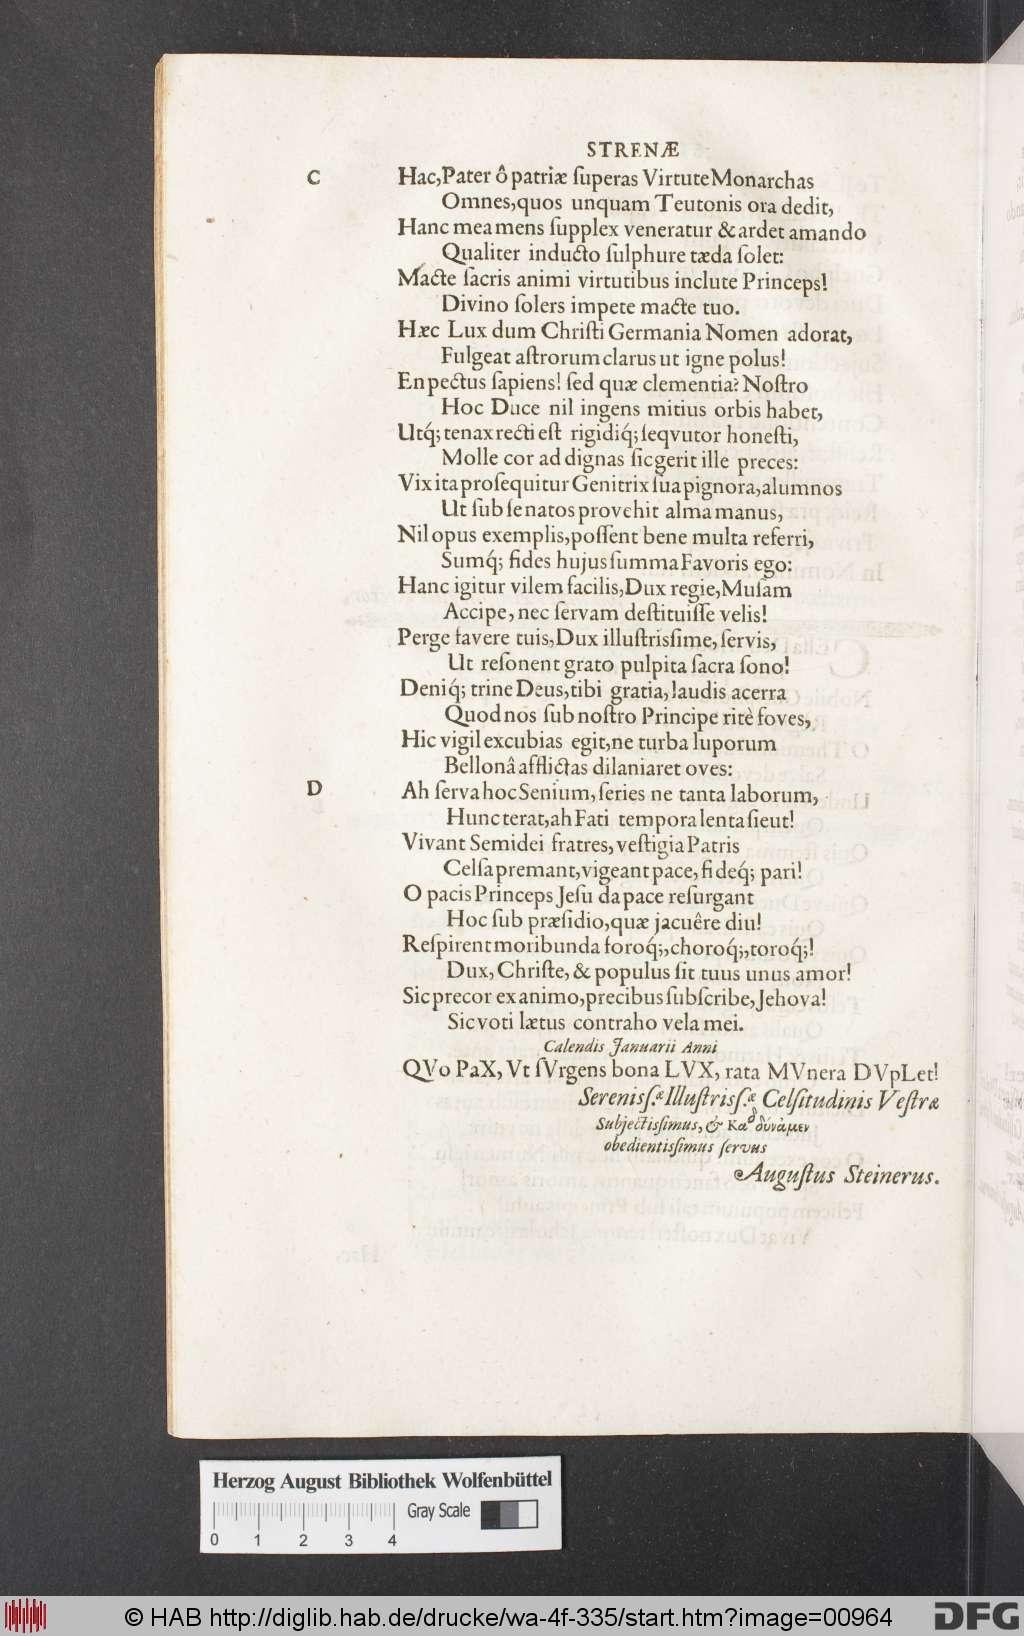 STRENÆ
C Hac, Pater ô patriæ ſuperas Virtute Monarchas
Omnes, quos unquam Teutonis ora dedit,
Hanc mea mens ſupplex veneratur & ardet amando
Qualiter inducto ſulphure tæda ſolet:
Macte ſacris animi virtutibus inclute Princeps!
Divino ſolers impete macte tuo.
Hæc Lux dum Chriſti Germania Nomen adorat,
Fulgeat aſtrorum clarus ut igne polus!
En pectus ſapiens! ſed quæ clementia? Noſtro
Hoc Duce nil ingens mitius orbis habet,
Utq́; tenax recti eſt rigidiq́; ſeqvutor honeſti,
Molle cor ad dignas ſic gerit ille preces:
Vix ita proſequitur Genitrix ſua pignora, alumnos
Ut ſub ſe natos provehit alma manus,
Nil opus exemplis, poſſent bene multa referri,
Sumq́; fides hujus ſumma Favoris ego:
Hanc igitur vilem facilis, Dux regie, Muſam
Accipe, nec ſervam deſtituiſſe velis!
Perge favere tuis, Dux illuſtrisſime, ſervis,
Ut reſonent grato pulpita ſacra ſono!
Deniq́; trine Deus, tibi gratia, laudis acerra
Quod nos ſub noſtro Principe ritè foves,
Hic vigil excubias egit, ne turba luporum
Bellonâ afflictas dilaniaret oves:
D Ah ſerva hoc Senium, ſeries ne tanta laborum,
Hunc terat, ah Fati tempora lenta ſieut!
Vivant Semidei fratres, veſtigia Patris
Celſa premant, vigeant pace, fideq́; pari!
O pacis Princeps Jeſu da pace reſurgant
Hoc ſub præſidio, quæ jacuêre diu!
Reſpirent moribunda foroq́;, choroq́;, toroq́;!
Dux, Chriſte, & populus ſit tuus unus amor!
Sic precor ex animo, precibus ſubſcribe, Jehova!
Sic voti lætus contraho vela mei.
Calendis Januarii Anni
QVo PaX, Vt ſVrgens bona LVX, rata MVnera DVpLet!
Sereniſſ.æ Illuſtriſſ.æ Celſitudinis Veſtræ
Subjectisſimus, & Καθδύναμεν
obedientisſimus ſervus
Auguſtus Steinerus.
Herzog August Bibliothek Wolfenbüttel
Gray Scale
0 1 2 3 4
© HAB http://diglib.hab.de/drucke/wa-4f-335/start.htm?image=00964
DFG